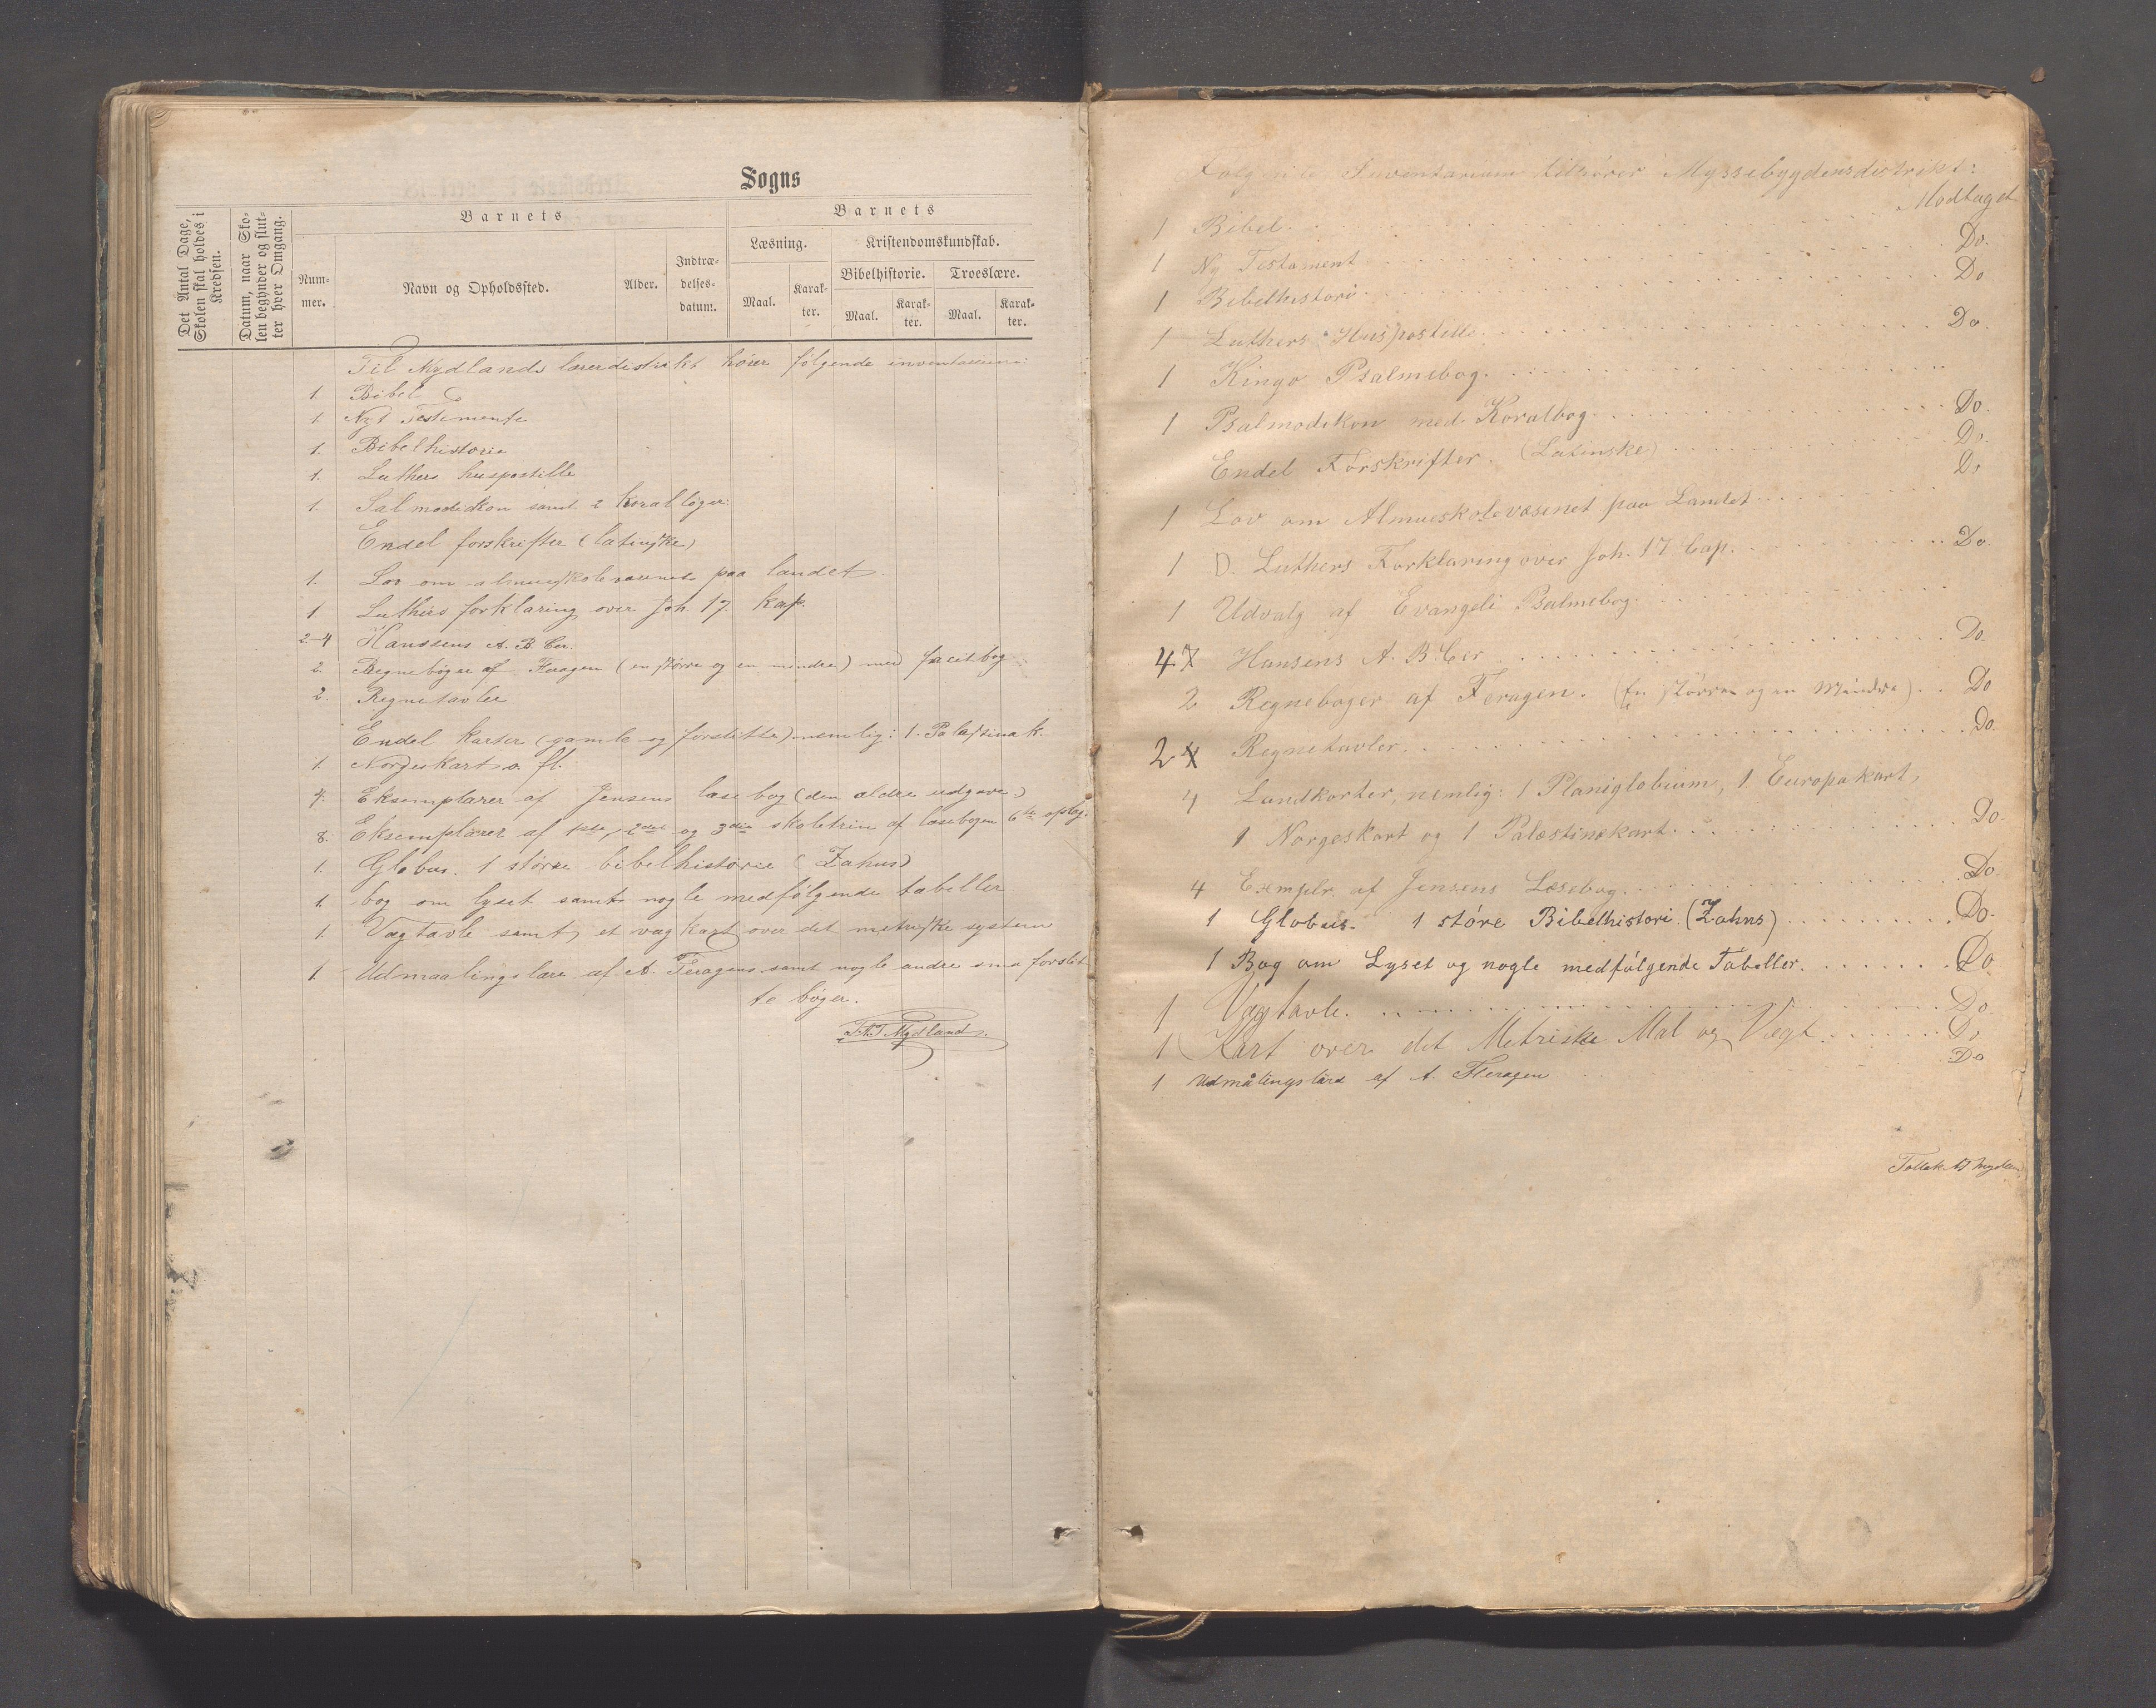 Sogns
Det Antal Dage, Skolen skal holdes i Kredsen.
Datum, naar Skolen begynder og slutter hver Omgang.
Barnets
Barnets
Nummer.
Navn og Opholdssted.
Alder.
Indtrædelsesdatum.
Læsning.
Kristendomskundskab.
Maal.
Karakter.
Bibelhistorie.
Troeslære.
Maal.
Karakter.
Maal.
Karakter.
Til Mydlands lærerdistrikt hører følgende inventarium:
1. Bibel
1. Nyt Testimente
1. Bibelhistorie
1. Luthers huspostille
1. Salmodidkon samt 2 koralbøger:
Endel forskrifter (latinske)
1. Lov om almueskolevæsenet paa landet.
1 Luthers forklaring over Joh. 17. kap.
2-4 Hanssens A. B. Cer.
2. Regnebøger af Feragen (en større og en mindre) med facitbog
2. Regnetavler
Endel karter (gamle og forslitte) nemlig: 1. Palæstinak.
1. Norgeskart o. fl.
4. Eksemplarer af Jensens læsebog (den ældre udgave)
8. Eksemplarer af 1ste, 2det og 3die skoletrin af læsebogen 6te oplag.
1. Globus. 1 større bibelhistorie (Zahns)
1. bog om lyset samt nogle medfølgende tabeller
1 Vægtavle samt et vægkart over det metriske system
1. Udmaalingslære af A. Feragen samt nogle andre smaa forslit
te bøger.
T. A. T. Mydland.
Følgende Inventarium tilhører Myssebygdensdistrikt:
Modtaget
1 Bibel. Do.
1 Ny Testament Do
1 Bibelhistori
1 Luthers Huspostille Do.
1 Kingo Psalmebog.
1 Psalmodikon med Koralbog. Do.
Endel Forskrifter. (Latinske) Do.
1 Lov om Almueskolevæsenet paa Landet Do
1 D. Luthers Forklaring over Joh. 17 Cap. Do.
1 Udvalg af Evangeli Psalmebog.
4 7 Hansens A. B. Cer Do.
2 Regnebøger af Feragen. (En Større og en Mindre). Do
2 4 Regnetavler. Do.
4 Landkorter, nemlig: 1 Planiglobium, 1 Europakart,
1 Norgeskart og 1 Palæstinakart. Do.
4 Exmplr. af Jensens Læsebog. Do.
1 Globus. 1 störe Bibelhistori. (Zahns) Do.
1 Bog om Lyset og nogle medfølgende Tabeller. Do
1 Vægtavle. Do
1 Kart over det Metriske Mål og Vægt. Do
1 Udmålingslære af A. Feragen Do
Tollak A T Mydland